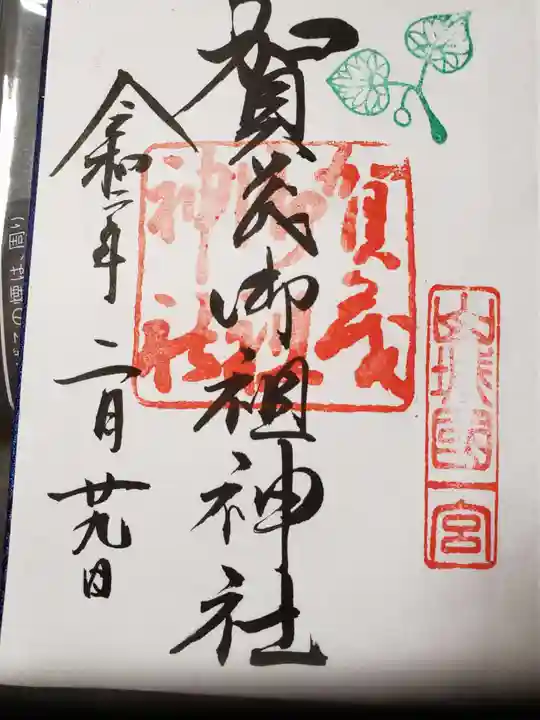 山城國一宮
賀茂御祖神社
賀茂
御祖
神社
令和二年 二月廿九日